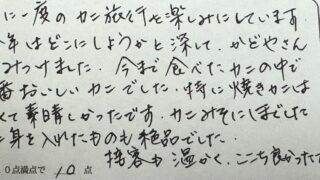 に一度のカニ旅行を楽しみにしています
年はどこにしようかと深して、かどやさん
みつけました。今まで食べたカニの中で
番おいしいカニでした。特に焼きカニは
くて素晴しかったです。カニみそにほぐした
身を入れたものも絶品でした。
接客も温かく、ここち良かったで
0点満点で 10 点